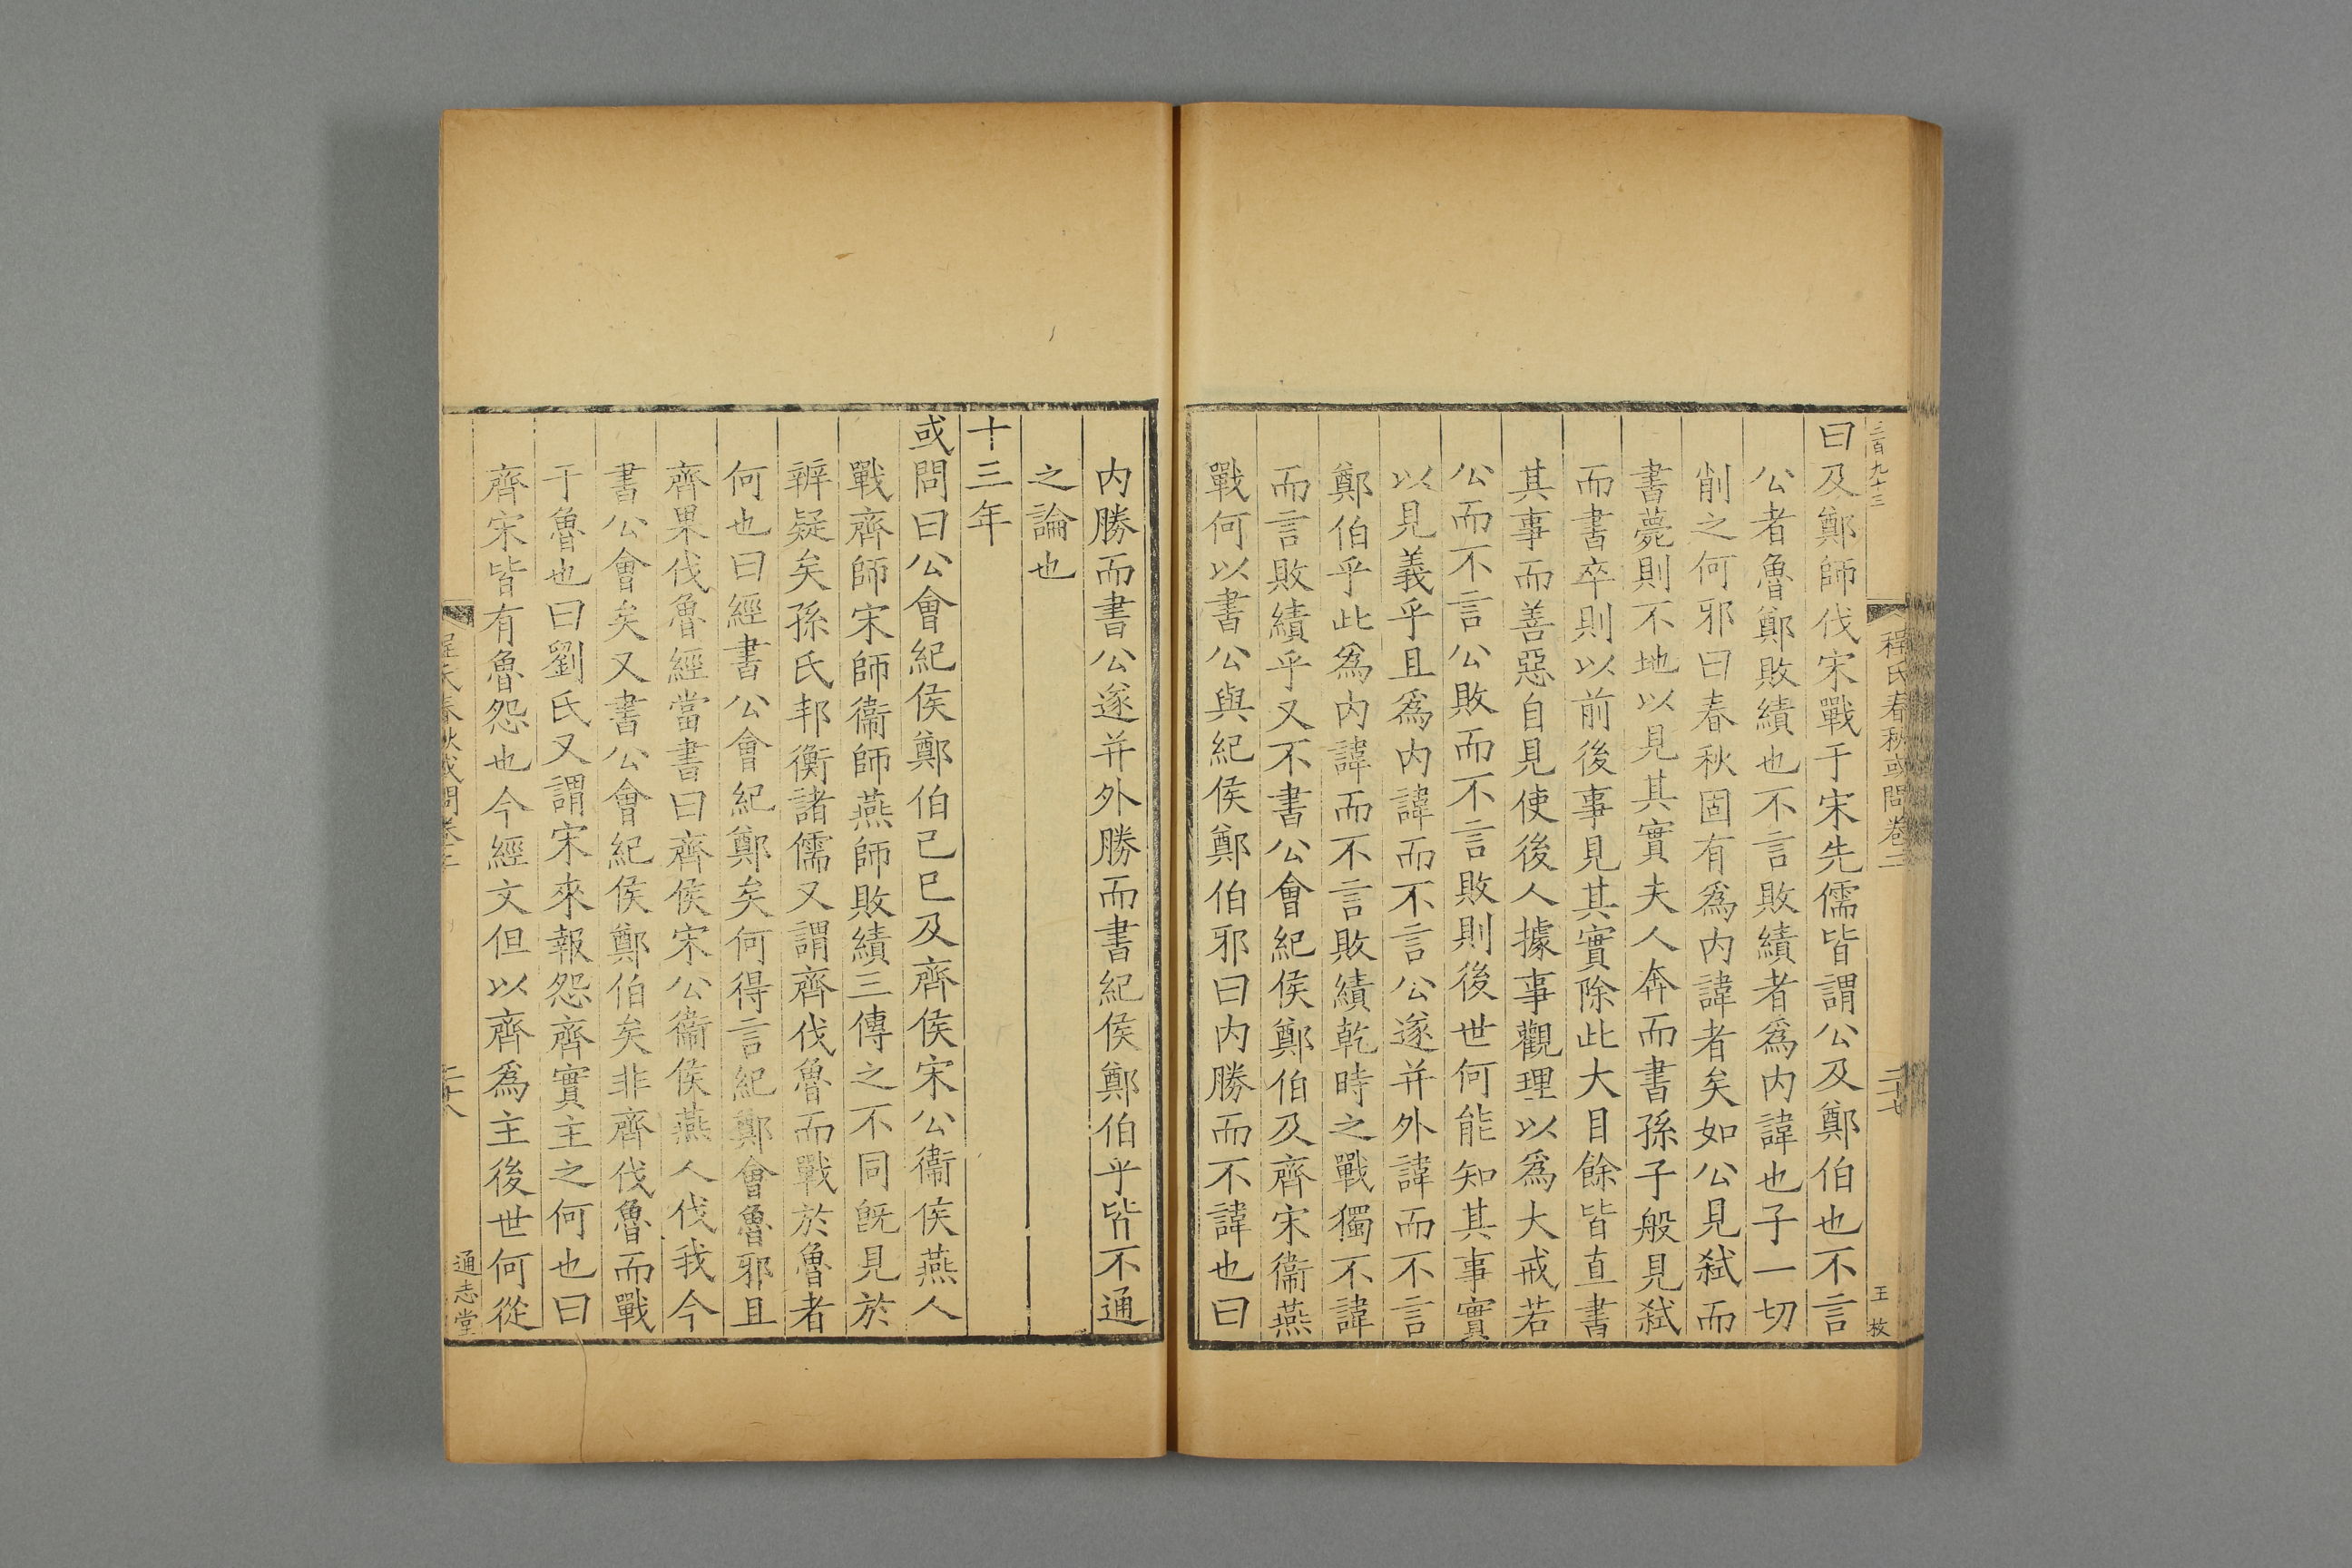 三百九十三
程氏春秋或問卷二
二十七
王枚
曰及鄭師伐宋戰于宋先儒皆謂公及鄭伯也不言
公者魯鄭敗績也不言敗績者爲内諱也子一切
削之何邪曰春秋固有爲内諱者矣如公見弑而
書薨則不地以見其實夫人奔而書孫子般見弑
而書卒則以前後事見其實除此大目餘皆直書
其事而善惡自見使後人據事觀理以爲大戒若
公而不言公敗而不言敗則後世何能知其事實
以見義乎且爲内諱而不言公遂并外諱而不言
鄭伯乎此爲内諱而不言敗績乾時之戰獨不諱
而言敗績乎又不書公會紀侯鄭伯及齊宋衞燕
戰何以書公與紀侯鄭伯邪曰内勝而不諱也曰
内勝而書公遂并外勝而書紀侯鄭伯乎皆不通
之論也
十三年
或問曰公會紀侯鄭伯己巳及齊侯宋公衞侯燕人
戰齊師宋師衞師燕師敗績三傳之不同旣見於
辨疑矣孫氏邦衡諸儒又謂齊伐魯而戰於魯者
何也曰經書公會紀鄭矣何得言紀鄭會魯邪且
齊果伐魯經當書曰齊侯宋公衞侯燕人伐我今
書公會矣又書公會紀侯鄭伯矣非齊伐魯而戰
于魯也曰劉氏又謂宋來報怨齊實主之何也曰
齊宋皆有魯怨也今經文但以齊爲主後世何從
程氏春秋或問卷二
二十八
通志堂